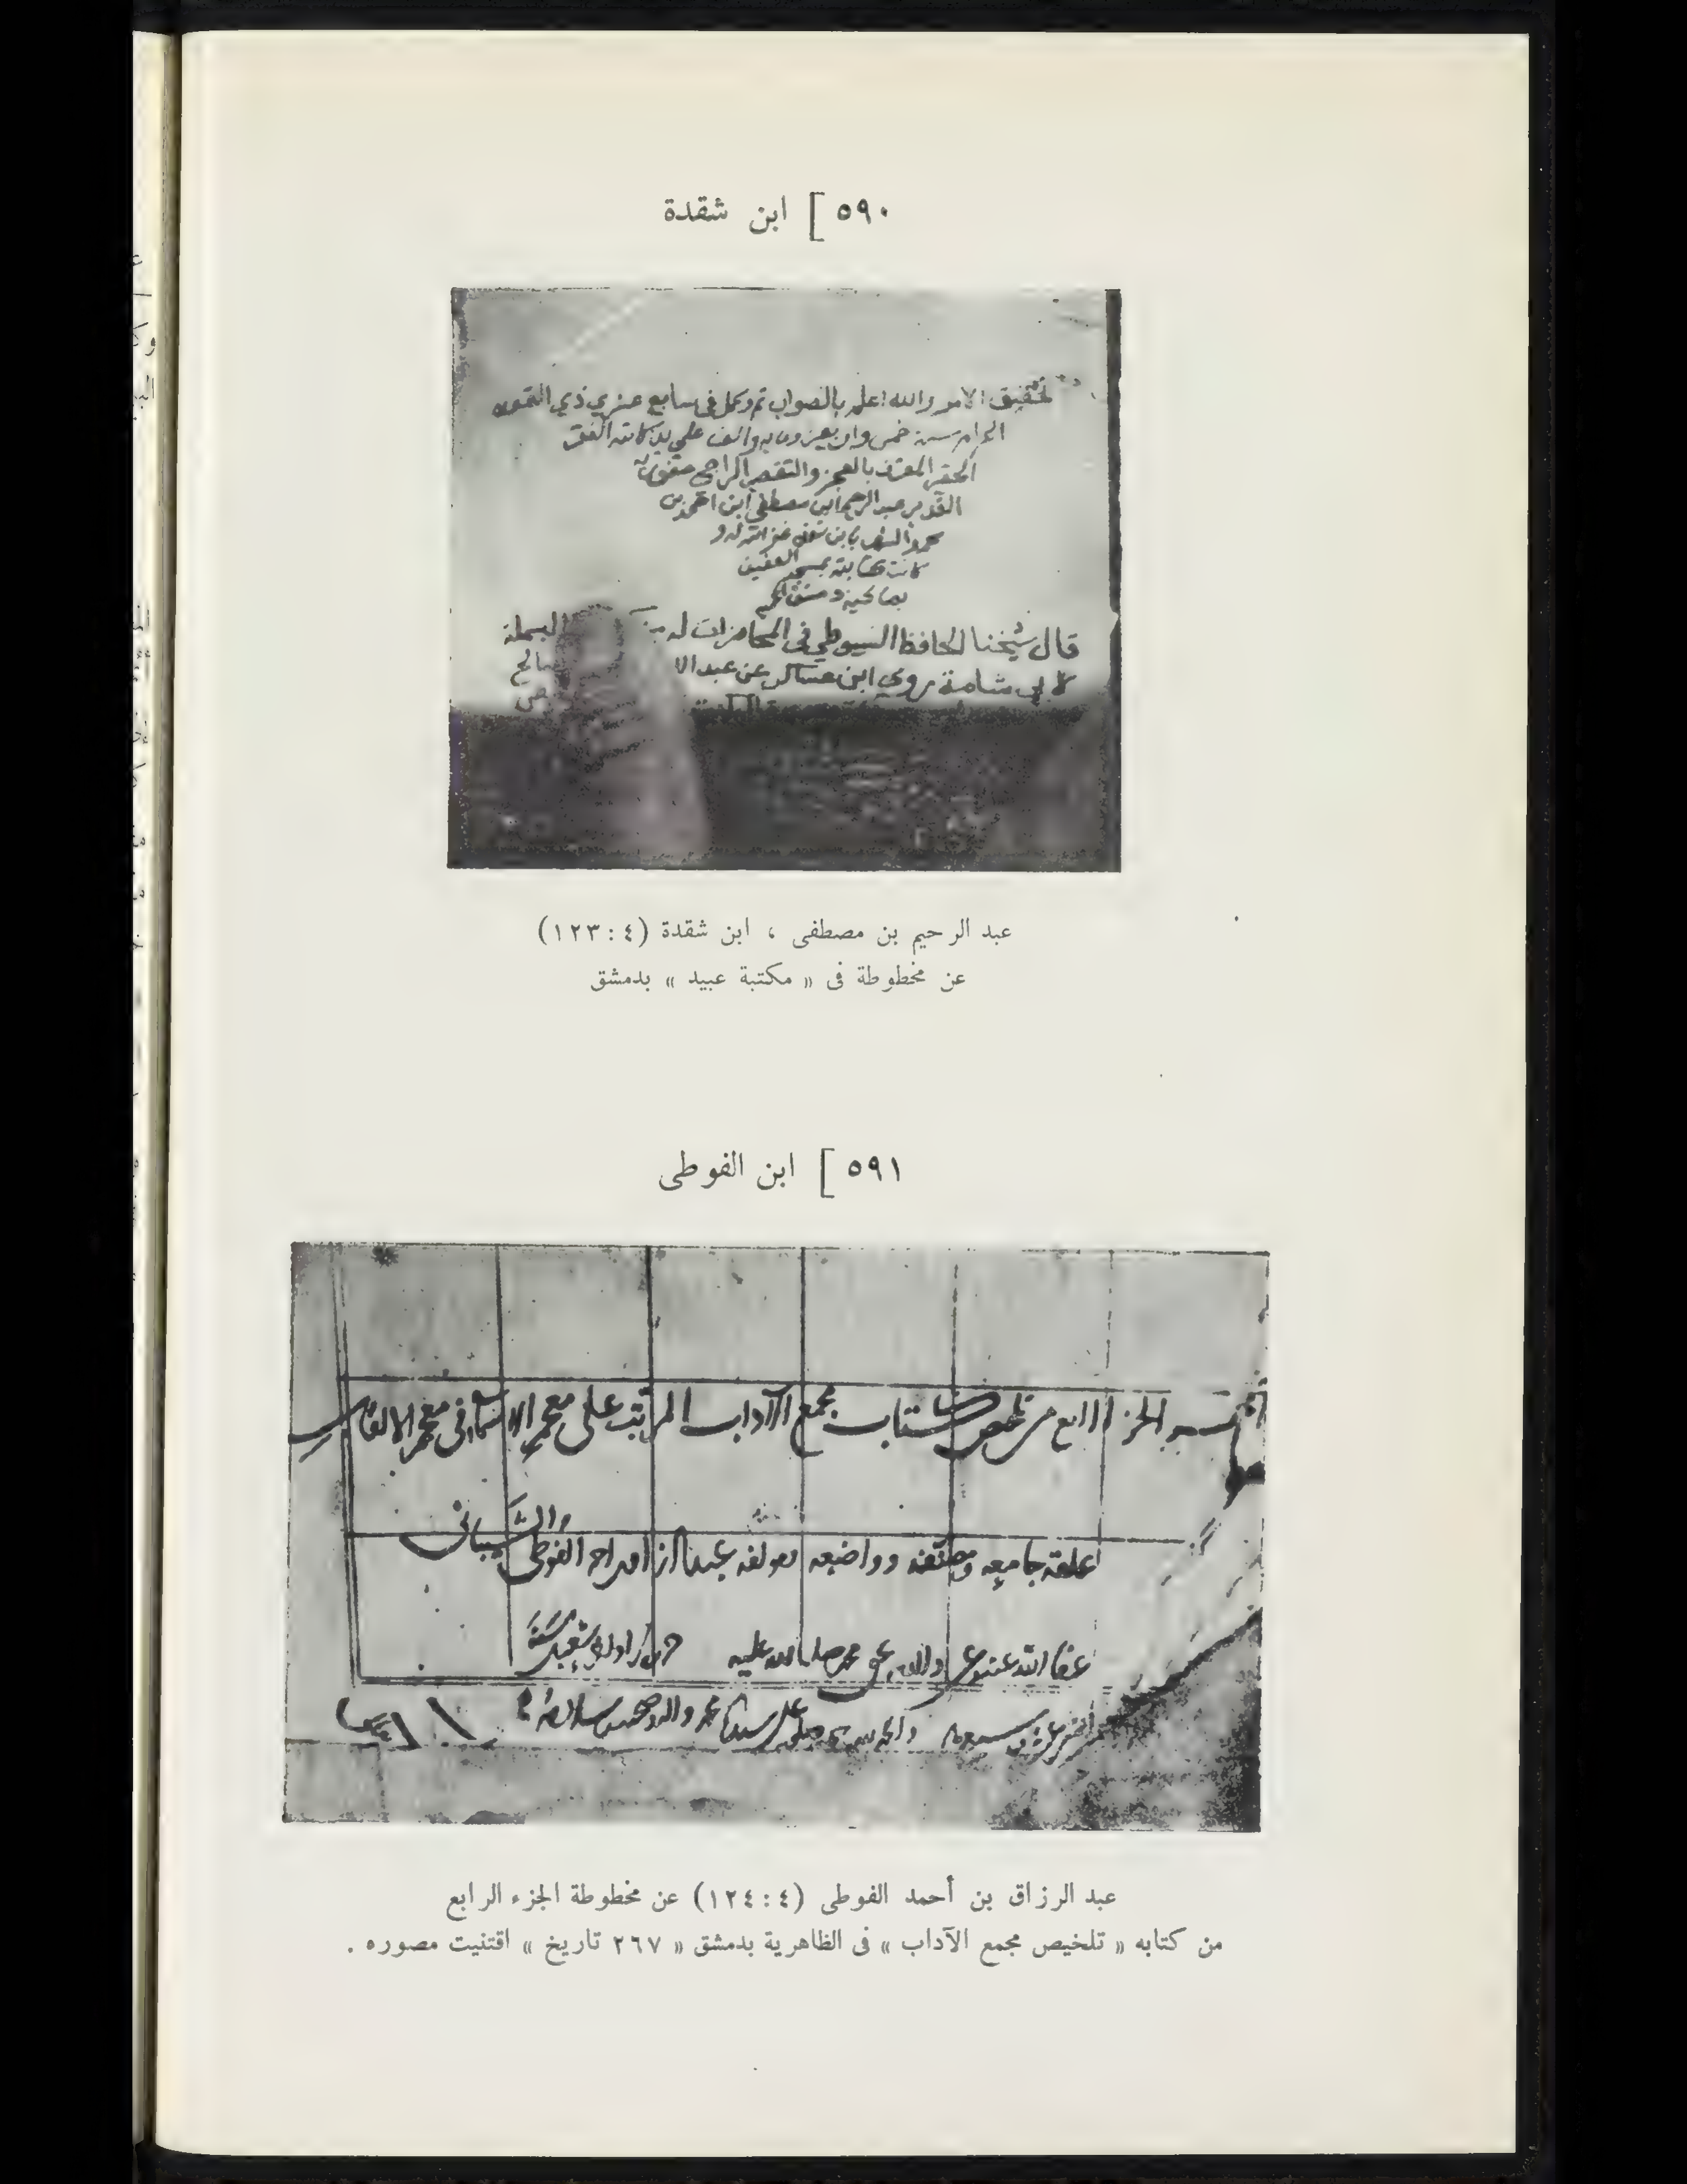 ٥٩٠ ] ابن شقدة
تحقيق الامر والله اعلم بالصواب تم وكمل في سابع عشري ذي القعده
الحرام سنة خمس واربعين ومايه والف على يد كاتبه الفقير
الحقير المعترف بالعجز والتقصير الراجي عفو ربه
القدير عبد الرحيم ابن مصطفى ابن احمد بن
محمد الشهير بابن شقده غفر الله له و
كانت كتابته بمسجد العفيف
بصالحية دمشق
قال شيخنا الحافظ السيوطي في المحاضرات له البسملة
لابي شامة روي ابن عساكر عن عبد الا صالح
عبد الرحيم بن مصطفى ، ابن شقدة (٤ : ١٢٣)
عن مخطوطة فى « مكتبة عبيد » بدمشق
٥٩١ ] ابن الفوطى
الجزء الرابع من تلخيص كتاب مجمع الآداب المرتب على معجم الاسماء في معجم الالقاب
والشيبانى
علقه جامعه ومصنفه وواضعه ومولفه عبد الرزاق بن احمد الفوطى
عفا الله عنه وعن والديه بحق محمد صلى الله عليه
على سيدنا محمد واله
عبد الرزاق بن أحمد الفوطى (٤ : ١٢٤) عن مخطوطة الجزء الرابع
من كتابه « تلخيص مجمع الآداب » فى الظاهرية بدمشق « ٢٦٧ تاريخ » اقتنيت مصوره .